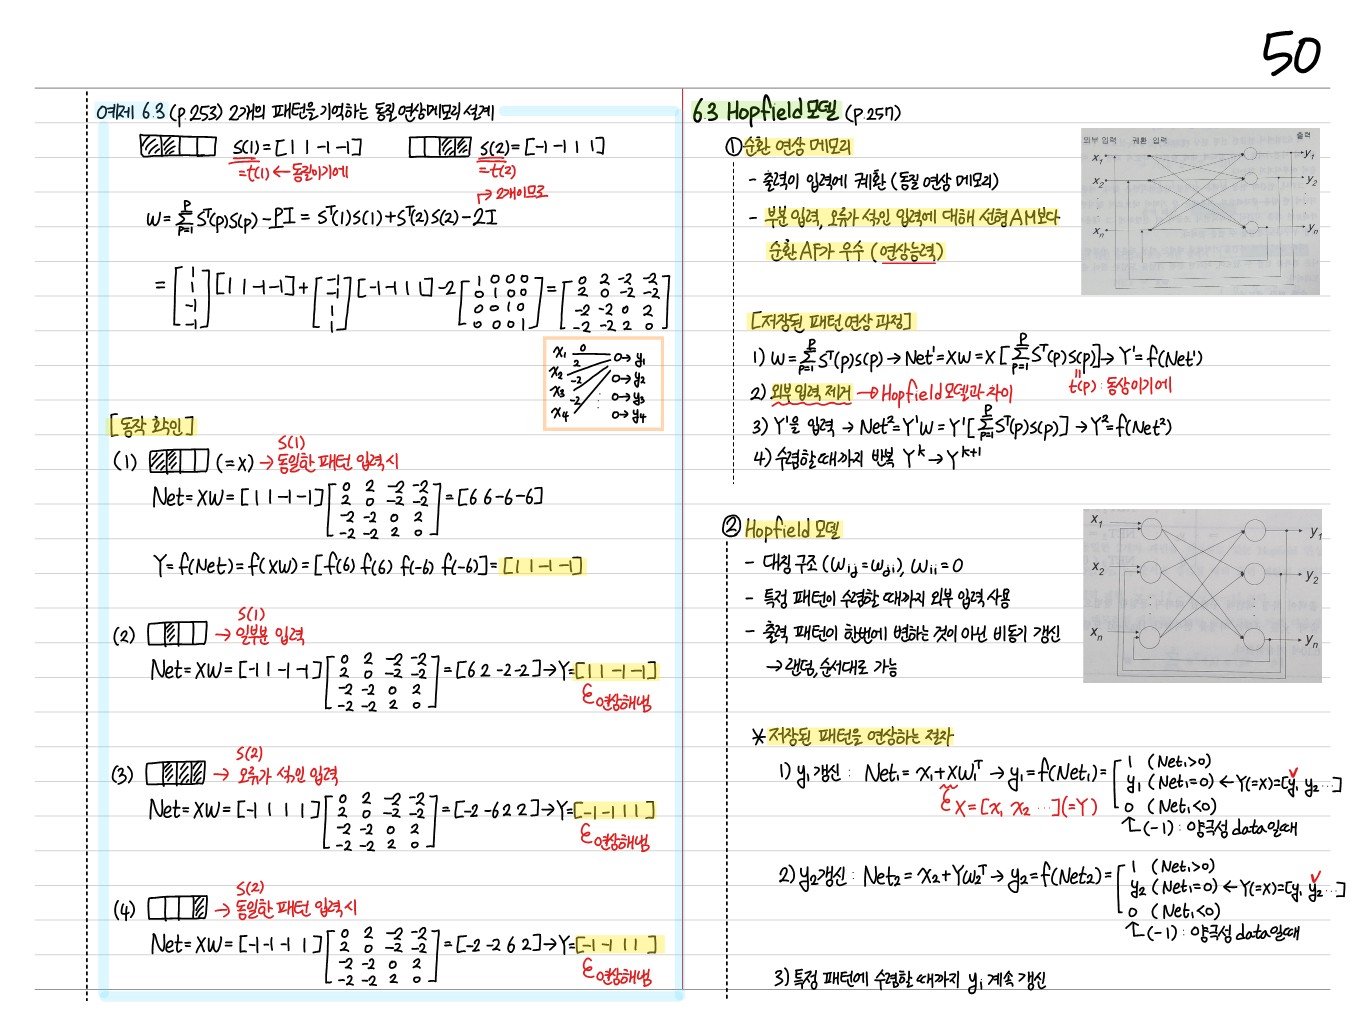 50
예제 6.3 (p.253) 2개의 패턴을 기억하는 동질 연상메모리 설계
S(1)=[1 1 -1 -1]
=t(1) ← 동질이기에
S(2)=[-1 -1 1 1]
=t(2)
→ 2개이므로
W = Σ(p=1→P) Sᵀ(p)S(p) - PI = Sᵀ(1)S(1)+Sᵀ(2)S(2)-2I
= [1 1 -1 -1]ᵀ [1 1 -1 -1] + [-1 -1 1 1]ᵀ [-1 -1 1 1] - 2 [1 0 0 0; 0 1 0 0; 0 0 1 0; 0 0 0 1] = [0 2 -2 -2; 2 0 -2 -2; -2 -2 0 2; -2 -2 2 0]
x₁ 0 0→ y₁
x₂ 2 0→ y₂
x₃ -2 0→ y₃
x₄ -2 0→ y₄
[동작 확인]
(1) (=X) → S(1) 동일한 패턴 입력시
Net = XW = [1 1 -1 -1] [0 2 -2 -2; 2 0 -2 -2; -2 -2 0 2; -2 -2 2 0] = [6 6 -6 -6]
Y = f(Net) = f(XW) = [f(6) f(6) f(-6) f(-6)] = [1 1 -1 -1]
(2) → S(1) 일부분 입력
Net = XW = [-1 1 -1 -1] [0 2 -2 -2; 2 0 -2 -2; -2 -2 0 2; -2 -2 2 0] = [6 2 -2 -2] → Y=[1 1 -1 -1]
연상해냄
(3) → S(2) 오류가 섞인 입력
Net = XW = [-1 1 1 1] [0 2 -2 -2; 2 0 -2 -2; -2 -2 0 2; -2 -2 2 0] = [-2 -6 2 2] → Y=[-1 -1 1 1]
연상해냄
(4) → S(2) 동일한 패턴 입력시
Net = XW = [-1 -1 -1 1] [0 2 -2 -2; 2 0 -2 -2; -2 -2 0 2; -2 -2 2 0] = [-2 -2 6 2] → Y=[-1 -1 1 1]
연상해냄
6.3 Hopfield 모델 (p.257)
① 순환 연상 메모리
- 출력이 입력에 궤환 (동질 연상 메모리)
- 부분 입력, 오류가 섞인 입력에 대해 선형 AM보다
순환 AF가 우수 (연상능력)
외부 입력 궤환 입력 출력
x₁ y₁
x₂ y₂
xₙ yₙ
[저장된 패턴 연상 과정]
1) W = Σ(p=1→P) Sᵀ(p)S(p) → Net¹ = XW = X [Σ(p=1→P) Sᵀ(p)S(p)] → Y¹ = f(Net¹)
t(p) : 동상이기에
2) 외부 입력 제거 → Hopfield 모델과 차이
3) Y¹을 입력 → Net² = Y¹W = Y¹[Σ(p=1→P) Sᵀ(p)S(p)] → Y² = f(Net²)
4) 수렴할 때까지 반복 Yᵏ → Yᵏ⁺¹
② Hopfield 모델
- 대칭 구조 (Wij = Wji), Wii = 0
- 특정 패턴이 수렴할 때까지 외부 입력 사용
- 출력 패턴이 한번에 변하는 것이 아닌 비동기 갱신
→ 랜덤, 순서대로 가능
x₁ y₁
x₂ y₂
xₙ yₙ
* 저장된 패턴을 연상하는 절차
1) y₁ 갱신 : Net₁ = x₁+XW₁ᵀ → y₁ = f(Net₁) = [1 (Net₁>0)
y₁ (Net₁=0) ← Y(=X)=[y₁ y₂ …]
0 (Net₁<0)
X = [x₁ x₂ …] (=Y)
(-1) : 양극성 data일때
2) y₂ 갱신 : Net₂ = x₂+YW₂ᵀ → y₂ = f(Net₂) = [1 (Net₁>0)
y₂ (Net₁=0) ← Y(=X)=[y₁ y₂ …]
0 (Net₁<0)
(-1) : 양극성 data일때
3) 특정 패턴에 수렴할 때까지 yᵢ 계속 갱신